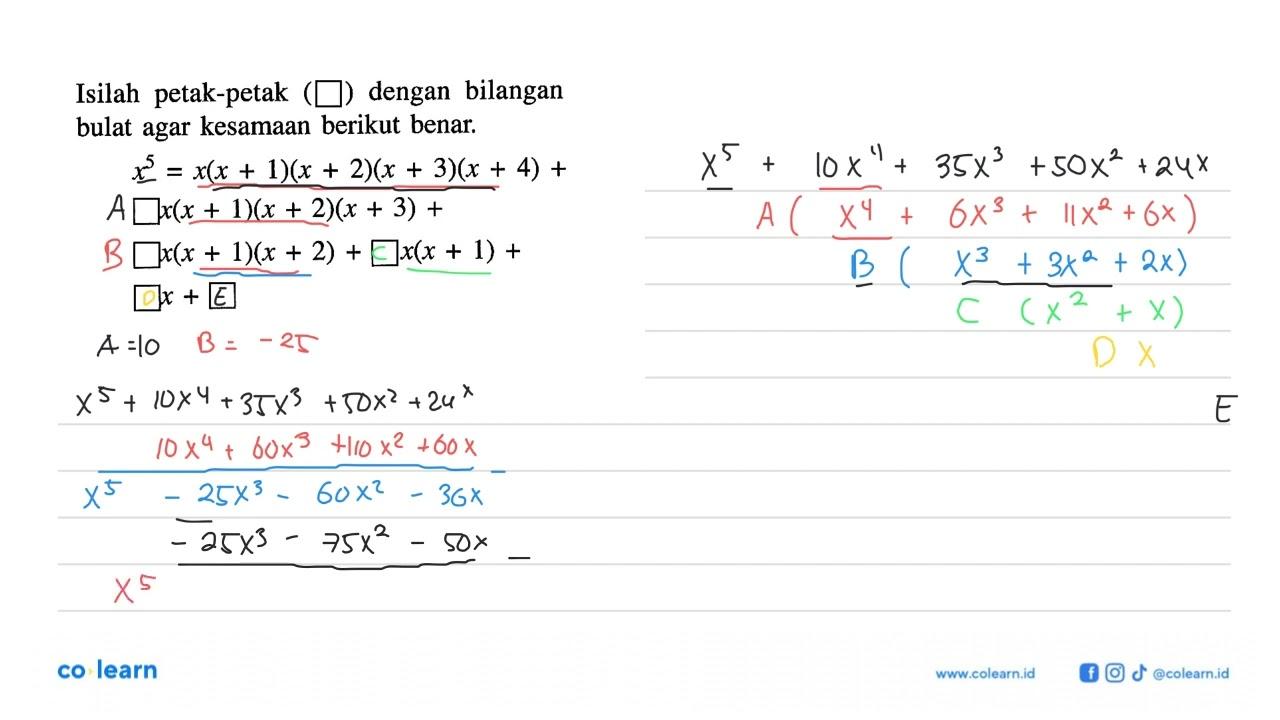 Isilah petak-petak (□) dengan bilangan
bulat agar kesamaan berikut benar.
x⁵ = x(x + 1)(x + 2)(x + 3)(x + 4) +
A □x(x + 1)(x + 2)(x + 3) +
B □x(x + 1)(x + 2) + C x(x + 1) +
D x + E
A = 10 B = -25
x⁵ + 10x⁴ + 35x³ + 50x² + 24x
10x⁴ + 60x³ + 110x² + 60x
x⁵ - 25x³ - 60x² - 36x
- 25x³ - 75x² - 50x
x⁵
x⁵ + 10x⁴ + 35x³ + 50x² + 24x
A ( x⁴ + 6x³ + 11x² + 6x)
B ( x³ + 3x² + 2x)
C (x² + x)
D x
E
co learn
www.colearn.id @colearn.id